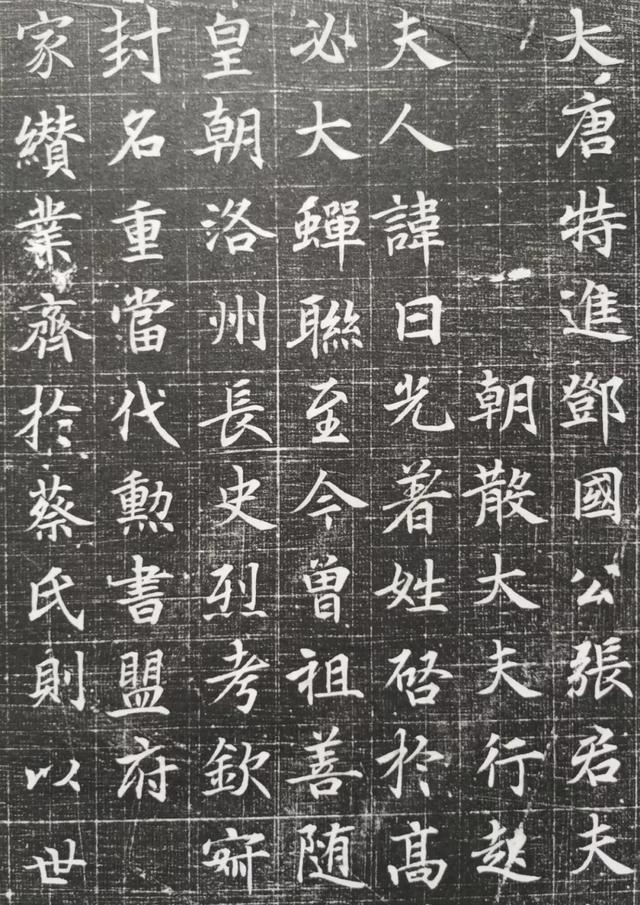 大唐特進鄧國公張君夫
朝散大夫行起
夫人諱日光著姓啓於高
必大蟬聯至今曾祖善随
皇朝洛州長史烈考欽寂
封名重當代勳書盟府
家纘業齊於蔡氏則以世